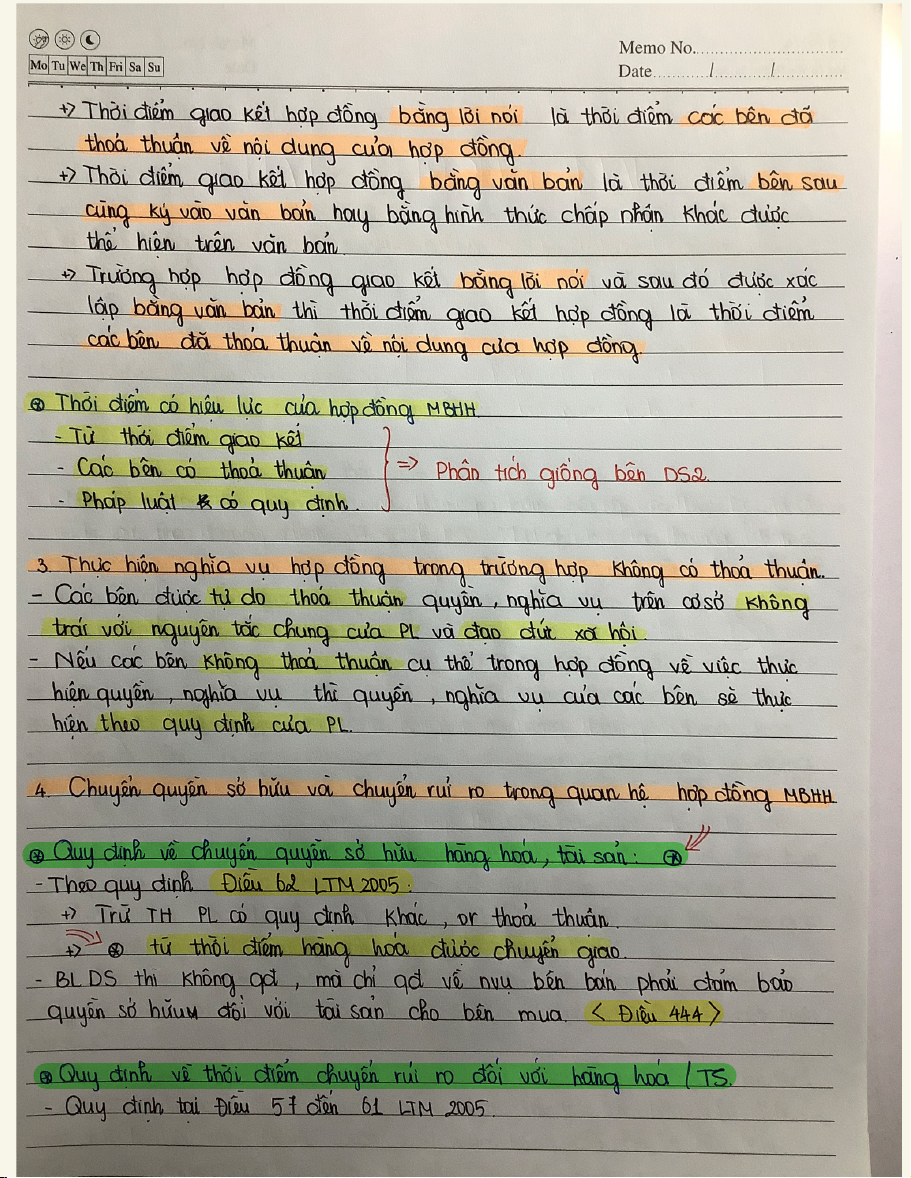 Memo No.
Mo Tu We Th Fri Sa Su
Date / /
+> Thời điểm giao kết hợp đồng bằng lời nói là thời điểm các bên đã
thoả thuận về nội dung của hợp đồng.
+> Thời điểm giao kết hợp đồng bằng văn bản là thời điểm bên sau
cùng ký vào văn bản hay bằng hình thức chấp nhận khác được
thể hiện trên văn bản
+> Trường hợp hợp đồng giao kết bằng lời nói và sau đó được xác
lập bằng văn bản thì thời điểm giao kết hợp đồng là thời điểm
các bên đã thoả thuận về nội dung của hợp đồng.
⊛ Thời điểm có hiệu lực của hợp đồng MBHH
- Từ thời điểm giao kết
- Các bên có thoả thuận
=> Phân tích giống bên DS2.
- Pháp luật có quy định.
3. Thực hiện nghĩa vụ hợp đồng trong trường hợp không có thoả thuận.
- Các bên được tự do thoả thuận quyền, nghĩa vụ trên cơ sở không
trái với nguyên tắc chung của PL và đạo đức xã hội.
- Nếu các bên không thoả thuận cụ thể trong hợp đồng về việc thực
hiện quyền, nghĩa vụ thì quyền, nghĩa vụ của các bên sẽ thực
hiện theo quy định của PL.
4. Chuyển quyền sở hữu và chuyển rủi ro trong quan hệ hợp đồng MBHH
⊛ Quy định về chuyển quyền sở hữu hàng hoá, tài sản: ⊛
- Theo quy định Điều 62 LTM 2005:
+> Trừ TH PL có quy định khác, or thoả thuận.
+> ⊛ từ thời điểm hàng hoá được chuyển giao.
- BLDS thì không qđ, mà chỉ qđ về nvụ bên bán phải đảm bảo
quyền sở hữu đối với tài sản cho bên mua. < Điều 444 >
⊛ Quy định về thời điểm chuyển rủi ro đối với hàng hoá / TS.
- Quy định tại Điều 57 đến 61 LTM 2005.